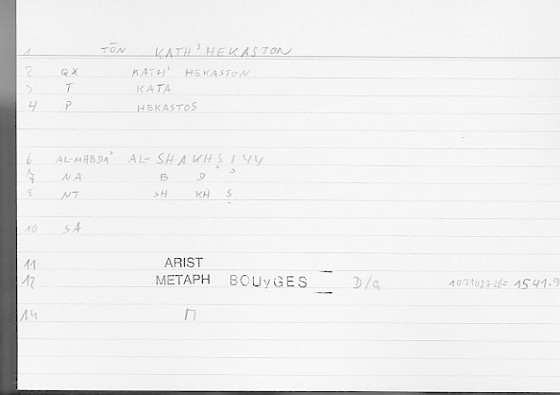 1 TŌN KATH' HEKASTON
2 QX KATH' HEKASTON
3 T KATA
4 P HEKASTOS
6 AL-MABDA' AL-SHAKHṢIYY
7 NA B D '
8 NT SH KH Ṣ
10 SA
11 ARIST
12 METAPH BOUyGES D/a 1071027-28= 1541.9
14 Π